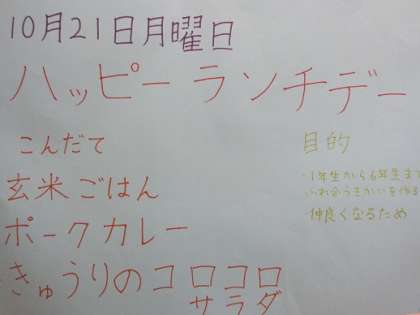 10月21日月曜日
ハッピーランチデー
こんだて
玄米ごはん
ポークカレー
きゅうりのコロコロ
サラダ
目的
・1年生から6年生まで
ふれ合うきかいを作る
仲良くなるため